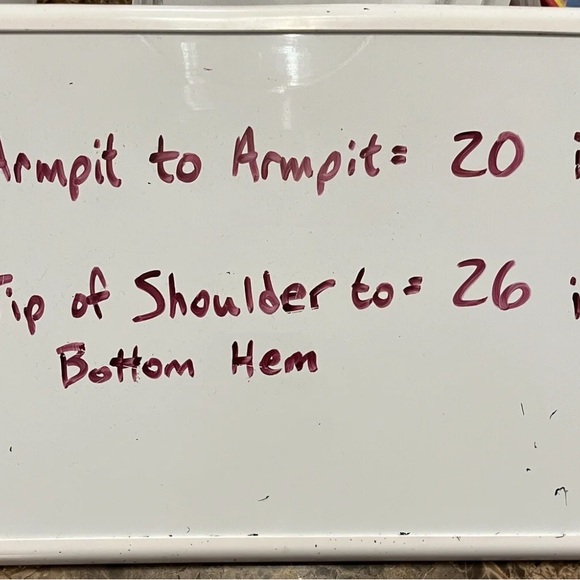 Armpit to Armpit = 20 i
Tip of Shoulder to = 26 i
Bottom Hem